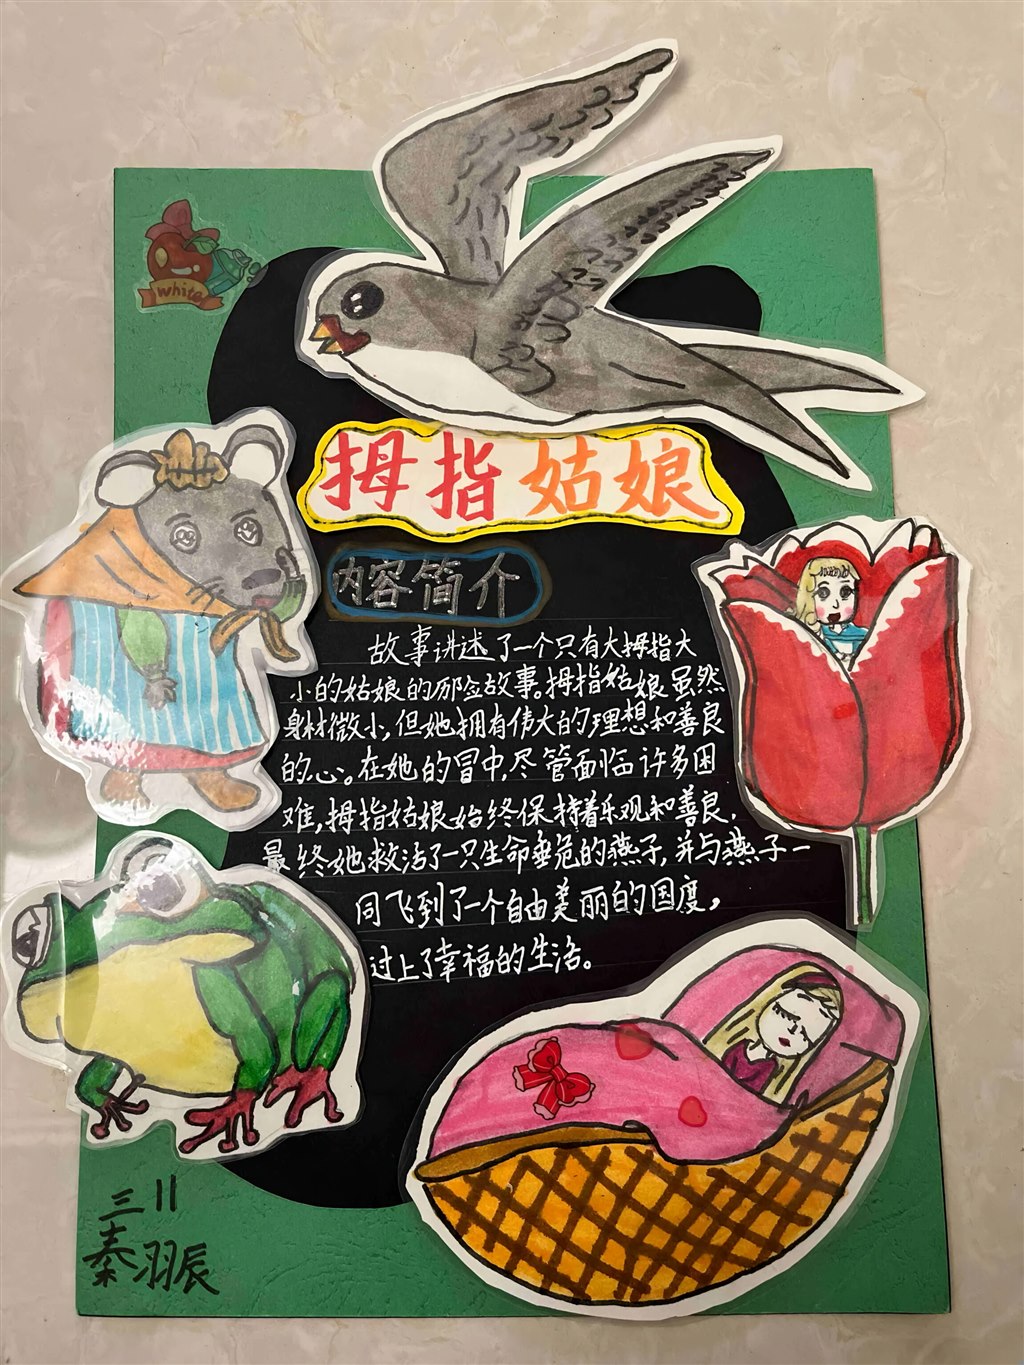 white
拇指姑娘
内容简介
故事讲述了一个只有大拇指大
小的姑娘的历险故事。拇指姑娘虽然
身材微小,但她拥有伟大的理想和善良
的心。在她的冒中,尽管面临许多困
难,拇指姑娘始终保持着乐观和善良,
最终她救活了一只生命垂危的燕子,并与燕子一
同飞到了一个自由美丽的国度,
过上了幸福的生活。
三11
秦羽辰